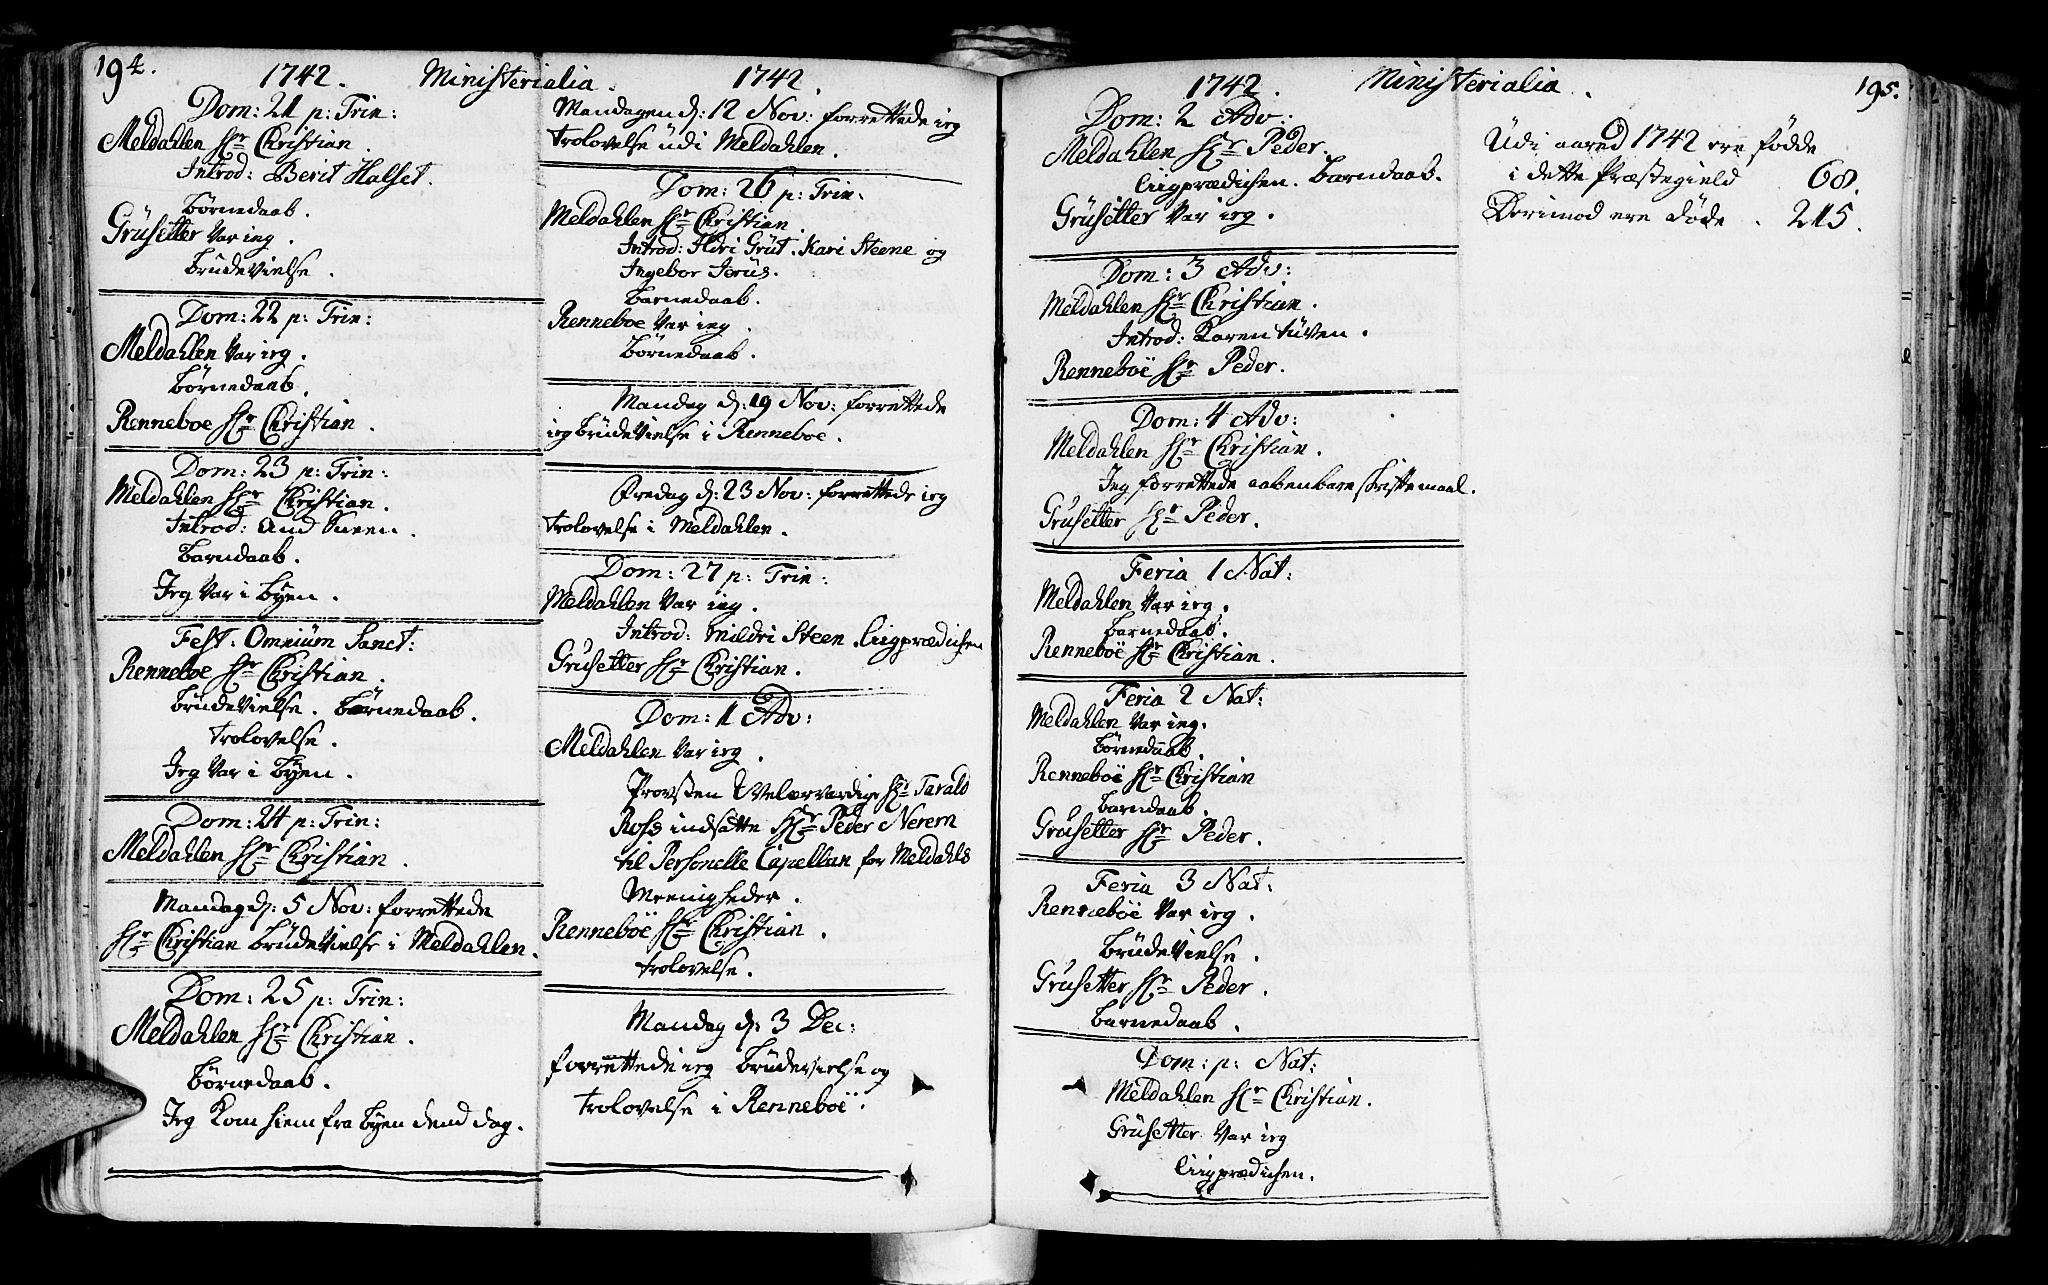 194.
1742. Ministerialia. 1742.
Dom: 21 p: Trin:
Meldahlen Hr Christian.
Introd: Berit Halset.
Børnedaab.
Grüsetter Var ieg.
Brüdevielse.
Dom: 22 p: Trin:
Meldahlen Var ieg.
Børnedaab.
Renneboe Hr Christian.
Dom: 23 p: Trin:
Meldahlen Hr Christian.
Introd: And Sneen.
Barndaab.
Jeg Var i Byen.
Fest: Omnium Sanct:
Renneboe Hr Christian.
Brüdevielse. Børnedaab.
Trolovelse.
Jeg Var i Byen.
Dom: 24 p: Trin:
Meldahlen Hr Christian.
Mandag d: 5 Nov: forrettede
Hr Christian Brüdevielse i Meldahlen.
Dom: 25 p: Trin:
Meldahlen Hr Christian.
Børnedaab.
Jeg Kom hiem fra Byen dend dag.
Mandagen d: 12 Nov: forrettede ieg
Trolovelse üdi Meldahlen.
Dom: 26 p: Trin:
Meldahlen Hr Christian.
Introd: Ildri Grüt. Kari Steene og
Ingebor Jerüs.
Barnedaab.
Renneboe Var ieg.
Børnedaab.
Mandag d: 19 Nov: forrettede
ieg Brüdevielse i Renneboe.
Fredag d: 23 Nov: forrettede ieg
Trolovelse i Meldahlen.
Dom: 27 p: Trin:
Meldahlen Var ieg.
Introd: Mildri Steen. Liigprædichen
Grüsetter Hr Christian.
Dom: 1 Adv:
Meldahlen Var ieg.
Provsten Velærværdige Hr Tarald
Rofs indsatte Hr Peder Nerem
til Personelle Capellan for Meldahls
Meenigheder.
Renneböe Hr Christian.
Trolovelse.
Mandag d: 3 Dec:
forrettede ieg Brüdevielse og
Trolovelse i Renneboe.
1742. Ministerialia. 195.
Dom: 2 Adv:
Meldahlen Hr Peder.
Liigprædichen. Barndaab.
Grüsetter Var ieg.
Dom: 3 Adv:
Meldahlen Hr Christian.
Introd: Karen Tüven.
Renneböe Hr Peder.
Dom: 4 Adv:
Meldahlen Hr Christian.
Jeg forrettede aabenbare Skriftemaal.
Grüsetter Hr Peder.
Feria 1 Nat:
Meldahlen Var ieg.
Barnedaab.
Renneböe Hr Christian.
Feria 2 Nat:
Meldahlen Var ieg.
Børnedaab.
Renneböe Hr Christian
Barndaab.
Grüsetter Hr Peder.
Feria 3 Nat:
Renneböe Var ieg.
Brüdevielse.
Grüsetter Hr Peder.
Barnedaab.
Dom: p: Nat:
Meldahlen Hr Christian.
Grüsetter Var ieg
Liigprædichen.
Udi aared 1742 ere fødde
i dette Præstegield 68.
Derimod ere døde. 215.